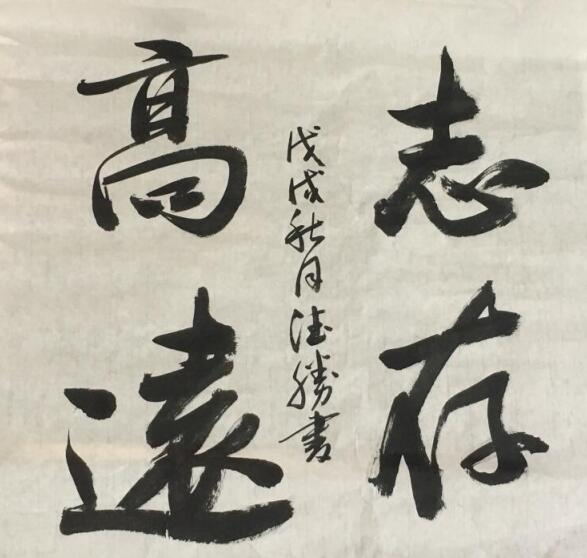 志存
高遠
戊戌秋月德勝書